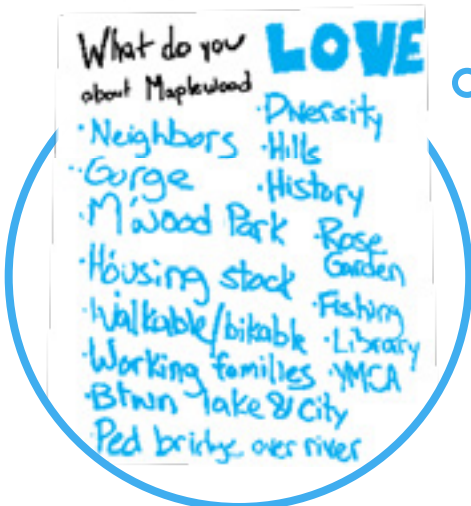 What do you LOVE
about Maplewood
·Neighbors
·Gorge
·M'wood Park
·Housing stock
·Walkable/bikable
·Working families
·Btwn lake & City
·Ped bridge over river
·Diversity
·Hills
·History
·Rose
Garden
·Fishing
·Library
·YMCA